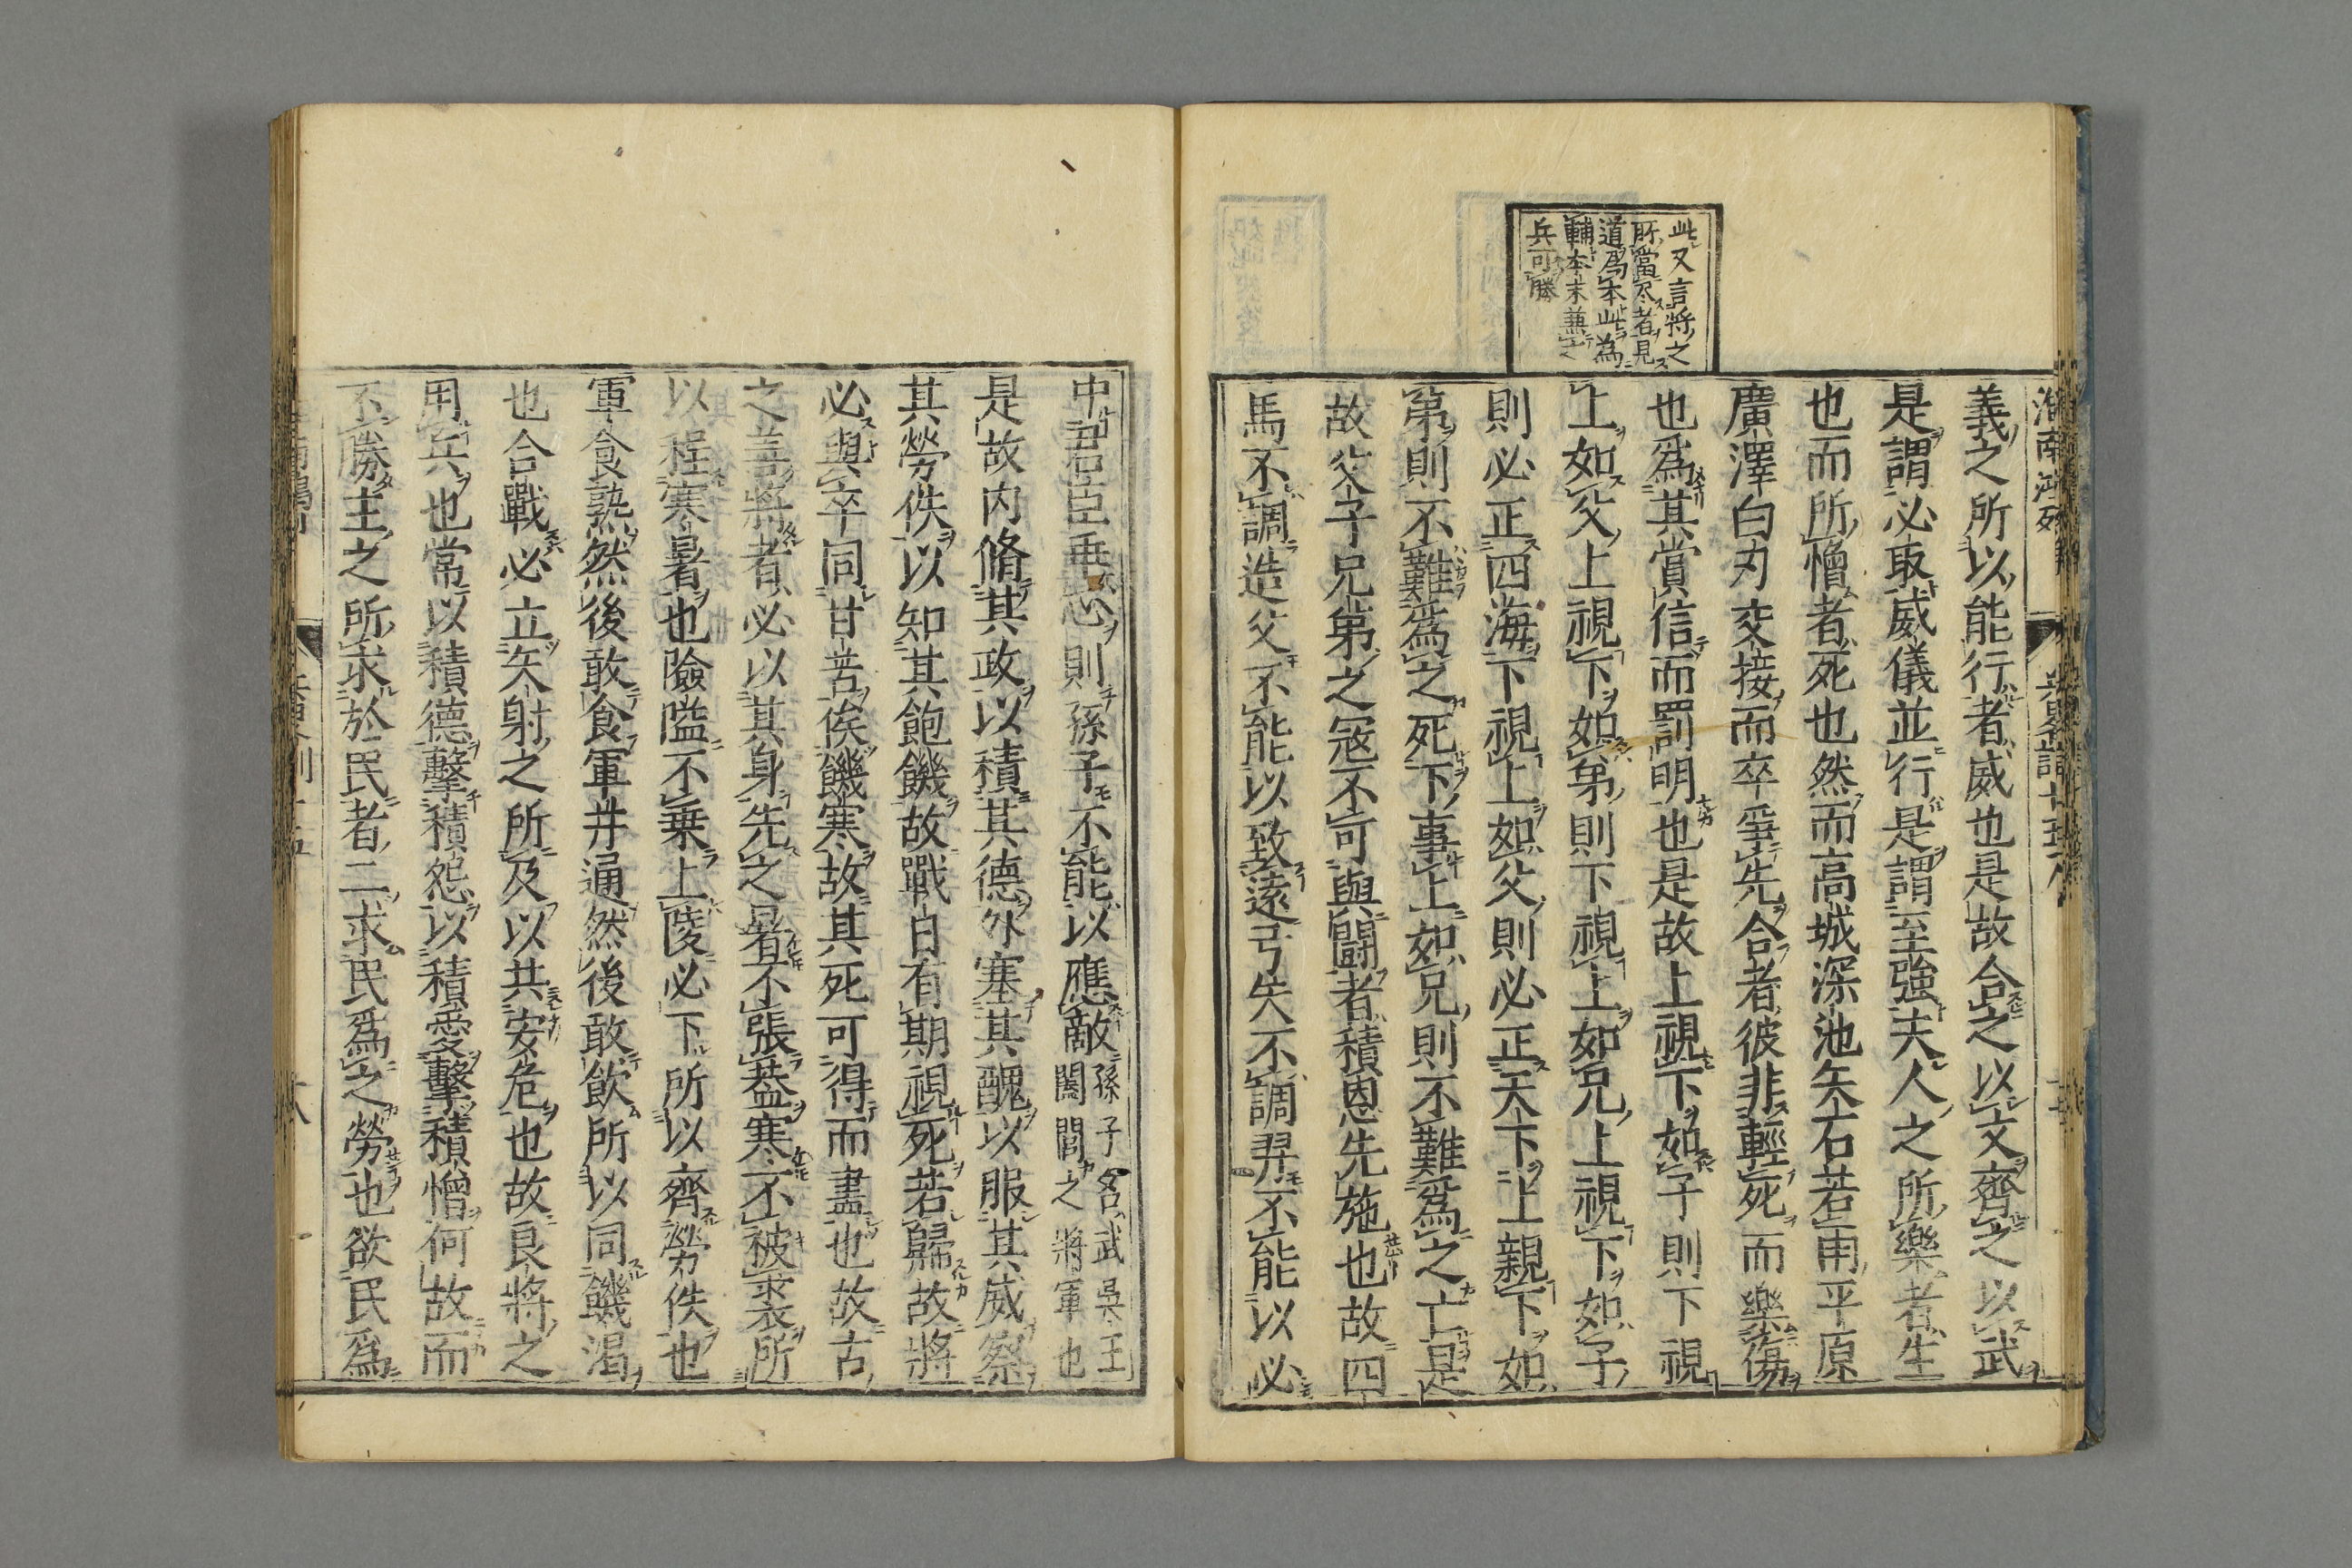 此又言將之
所當尽者見
道爲本此為
輔本末兼之
兵可勝
義之所以能行者威也是故合之以文齊之以武
是謂必取威儀並行是謂至強夫人之所樂者生
也而所憎者死也然而高城深池矢石若雨平原
廣澤白刃交接而卒爭先合者彼非輕死而樂傷
也爲其賞信而罰明也是故上視下如子則下視
上如父上視下如弟則下視上如兄上視下如子
則必正四海下視上如父則必正天下上親下如
第則不難爲之死下事上如兄則不難爲之亡是
故父子兄弟之冦不可與闘者積恩先施也故四
馬不調造父不能以致遠弓矢不調羿不能以必
中君臣乖心則孫子不能以應敵孫子名武吳王
闔閭之將軍也
是故内脩其政以積其德外塞其醜以服其威察
其勞佚以知其飽饑故戰日有期視死若歸故將
必與卒同甘苦俟饑寒故其死可得而盡也故古
之善將者必以其身先之暑不張葢寒不被裘所
以程寒暑也險隘不乗上陵必下所以齊勞佚也
軍食熟然後敢食軍井通然後敢飲所以同饑渴
也合戰必立矢射之所及以共安危也故良將之
用兵也常以積德擊積怨以積愛擊積憎何故而
不勝主之所求於民者二求民爲之勞也欲民爲